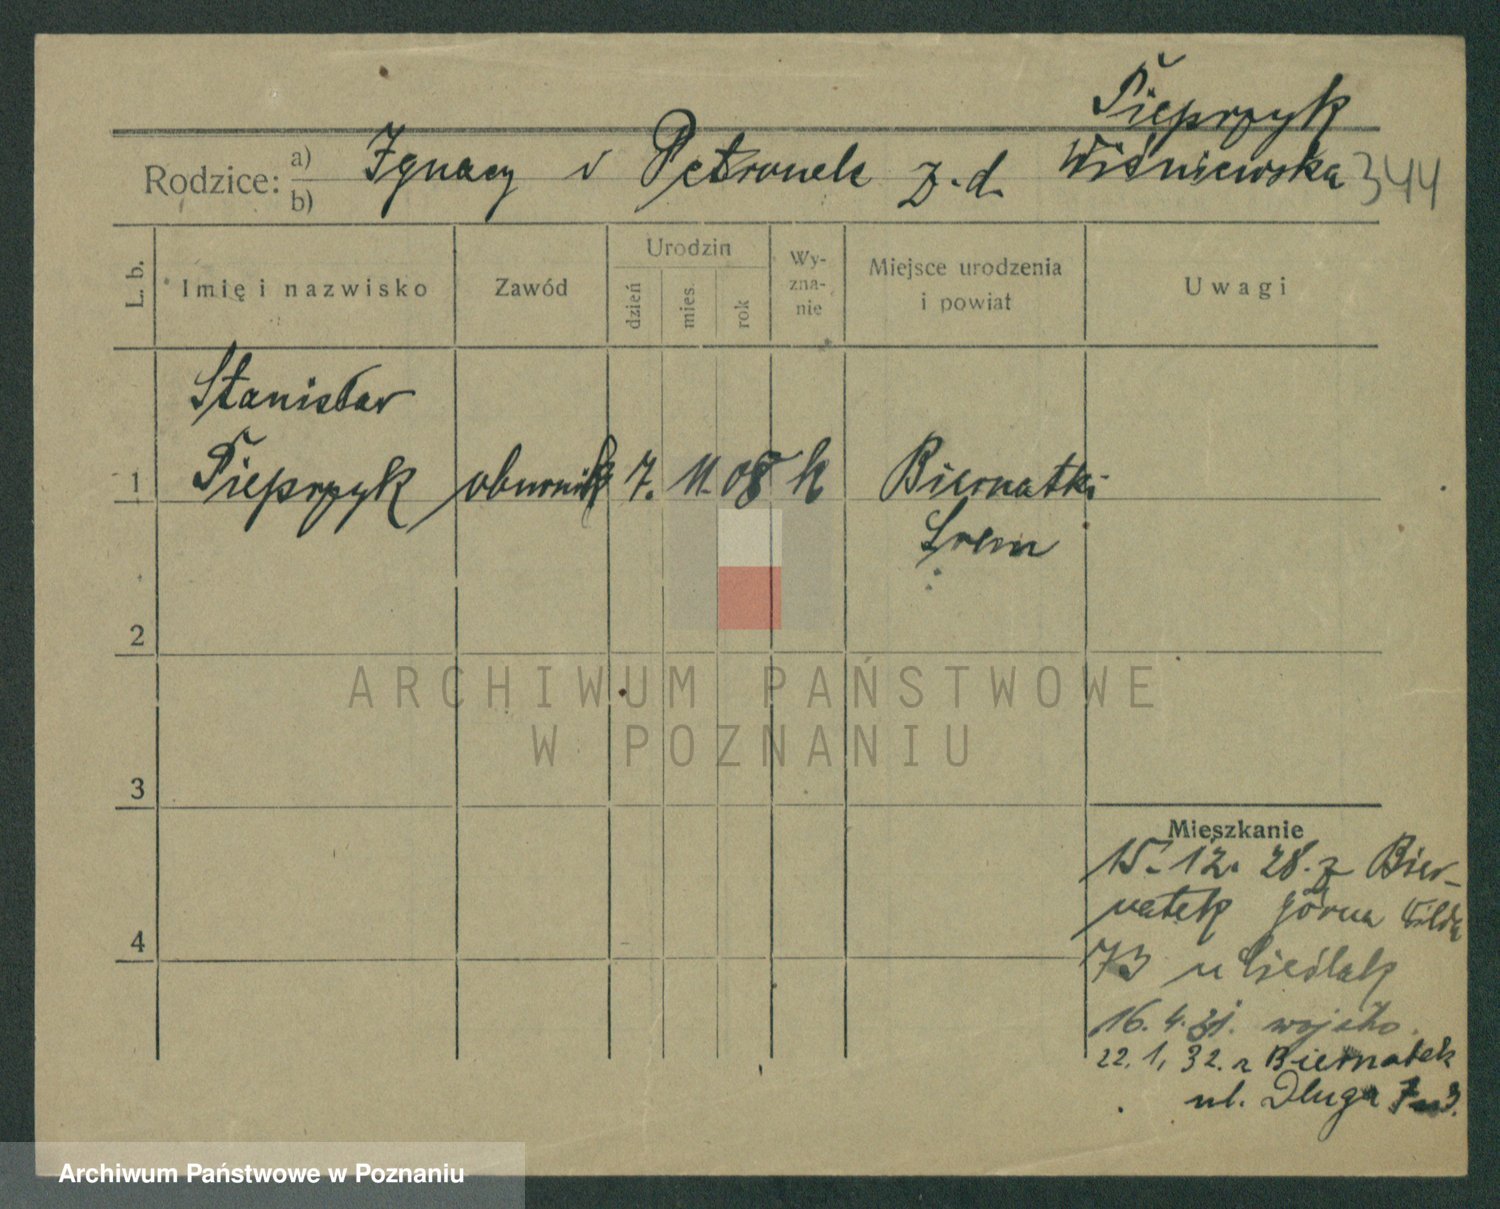 Pieprzyk
Rodzice: a) b) Ignacy i Petronela z.d. Wiśniewska 344
L. b.
Imię i nazwisko
Zawód
Urodzin
dzień
mies.
rok
Wy-
zna-
nie
Miejsce urodzenia
i powiat
Uwagi
Stanisław
1 Pieprzyk 7. 11. 08 k Biernatki
Śrem
2
ARCHIWUM PAŃSTWOWE
W POZNANIU
3
Mieszkanie
15. 12. 28. z Bier-
natek Górna Wilda
4
73 u Cieślak
16. 4. 31. wojsko.
22. 1. 32. z Biernatek
ul. Długa 3.
Archiwum Państwowe w Poznaniu